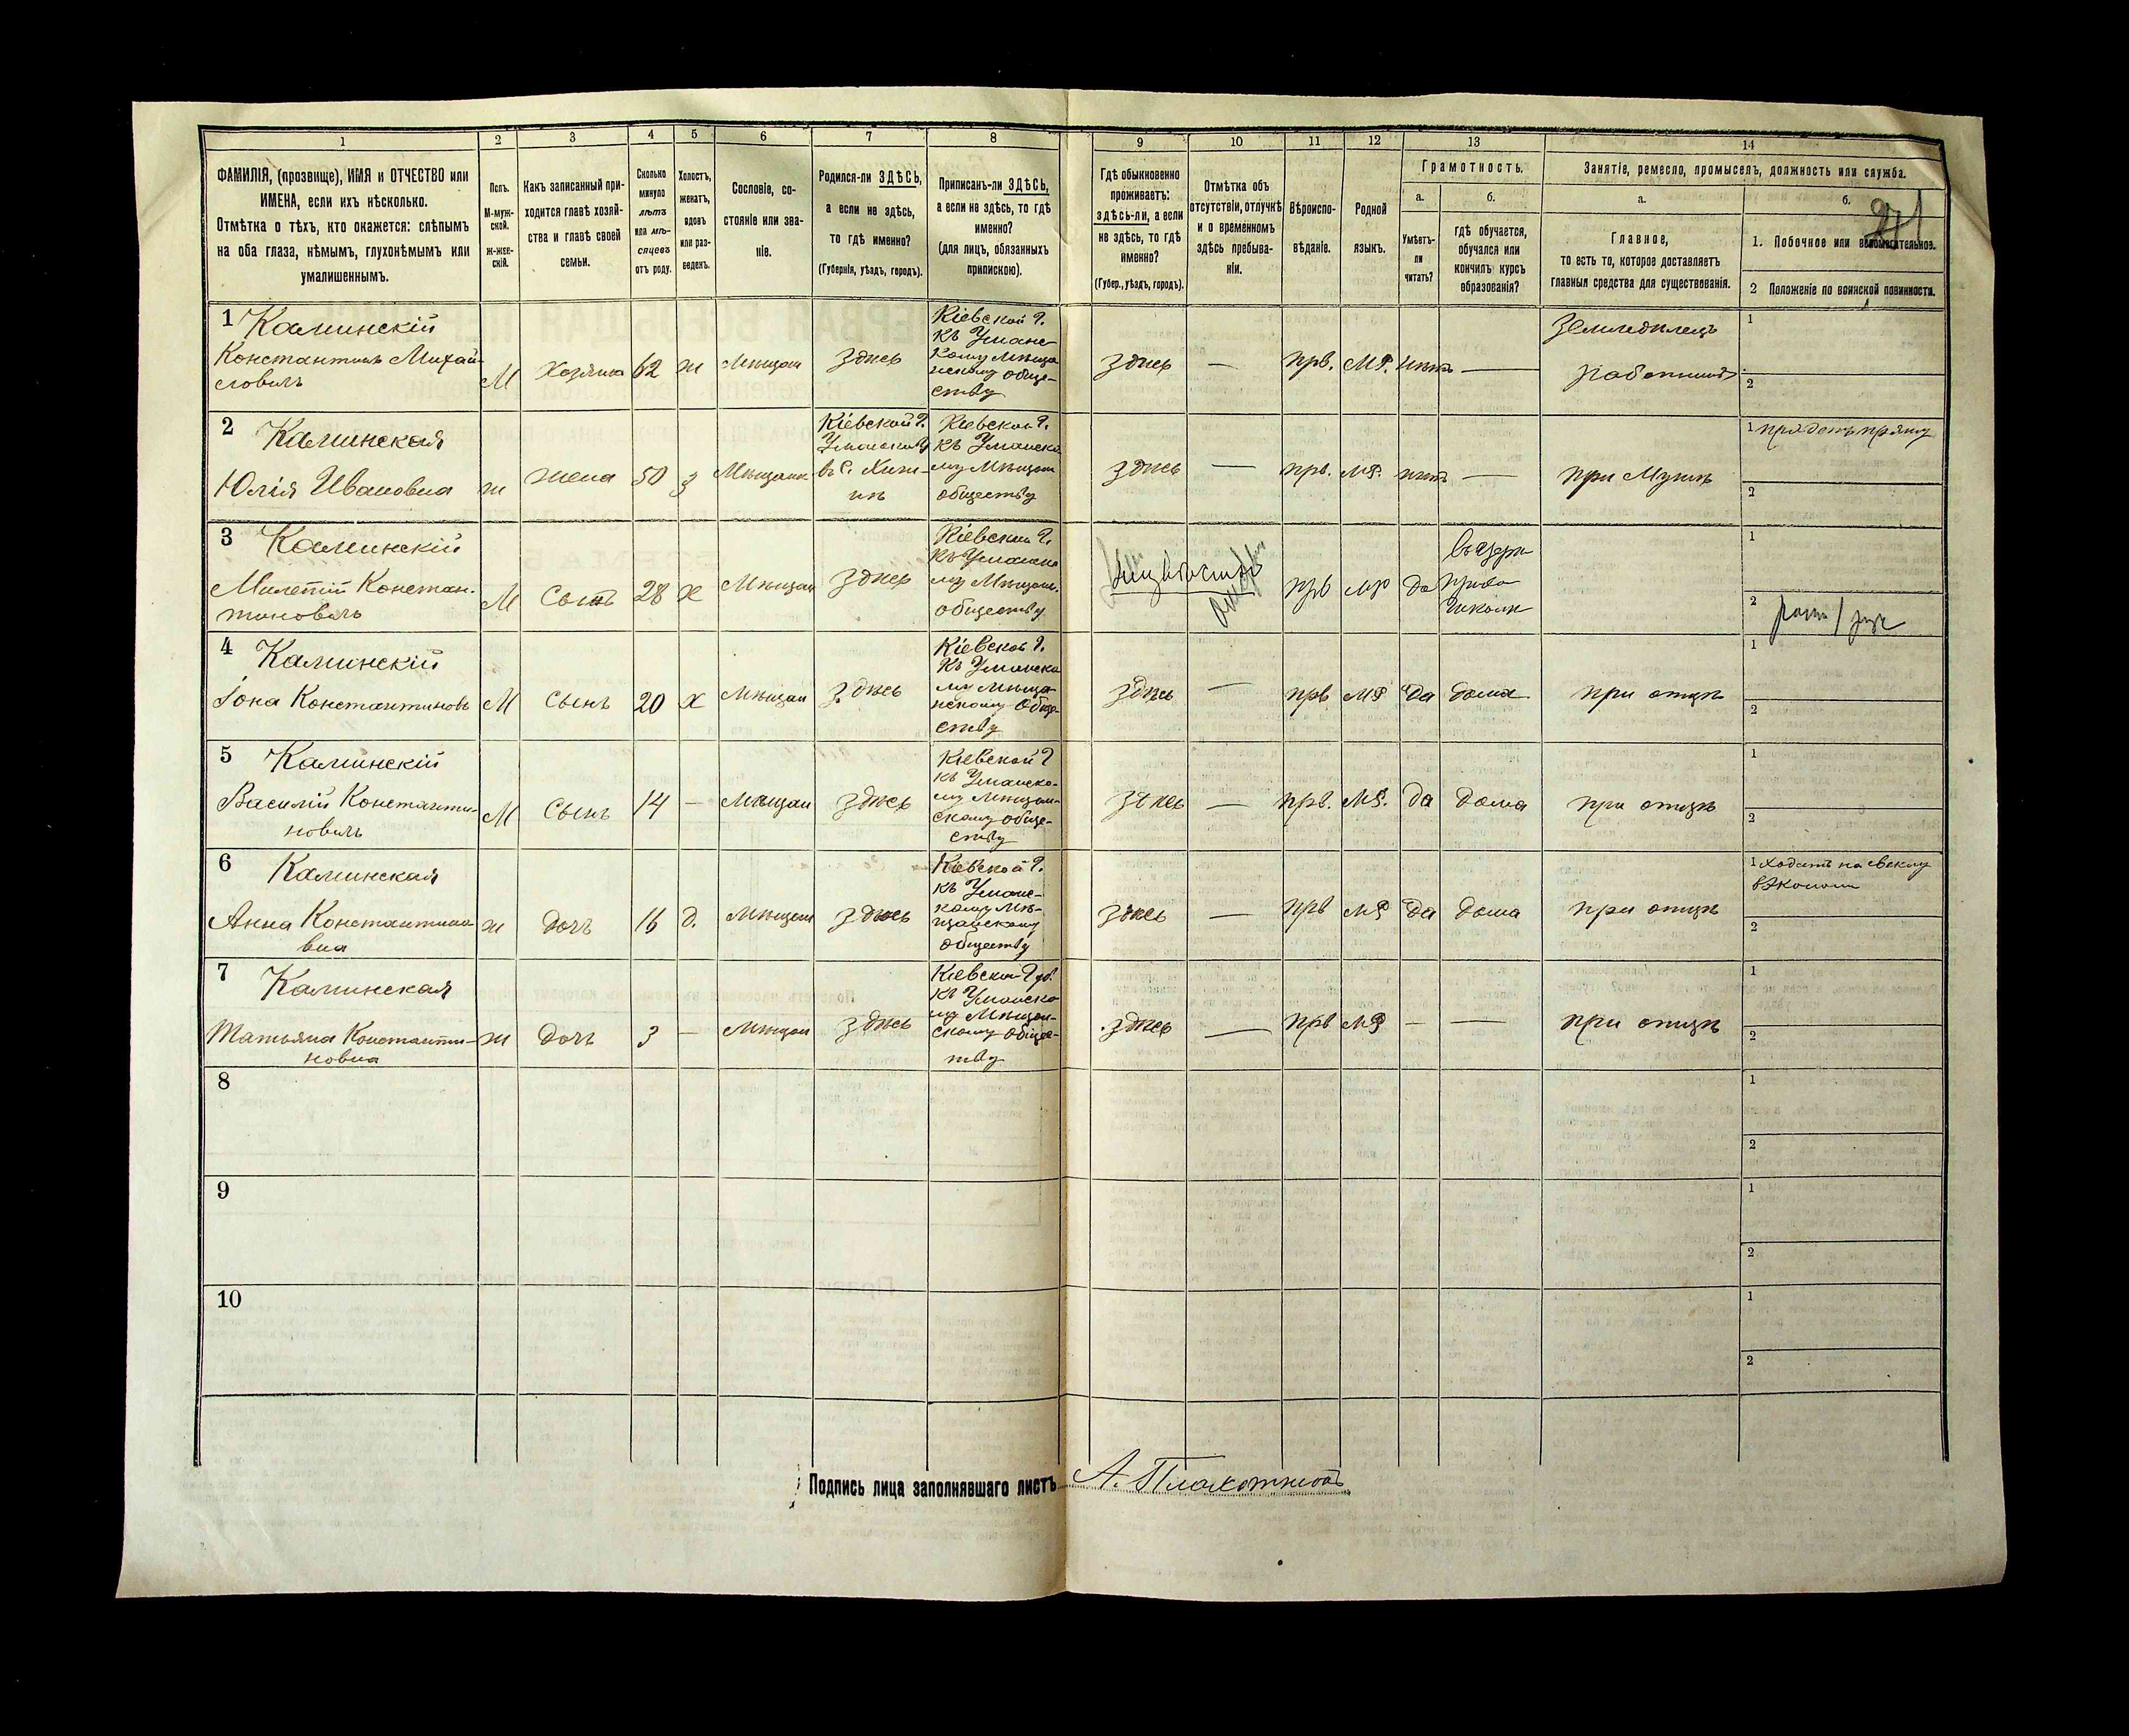 1
2
3
4
5
6
7
8
9
10
11
12
13
14
ФАМИЛІЯ, (прозвище), ИМЯ и ОТЧЕСТВО или
ИМЕНА, если ихъ нѣсколько.
Отмѣтка о тѣхъ, кто окажется: слѣпымъ
на оба глаза, нѣмымъ, глухонѣмымъ или
умалишеннымъ.
Полъ.
М-муж-
ской.
ж-жен-
скій.
Какъ записанный при-
ходится главѣ хозяй-
ства и главѣ своей
семьи.
Сколько
минуло
лѣтъ
или мѣ-
сяцевъ
отъ роду.
Холостъ,
женатъ,
вдовъ
или раз-
веденъ.
Сословіе, со-
стояніе или зва-
ніе.
Родился-ли ЗДѢСЬ,
а если не здѣсь,
то гдѣ именно?
(Губернія, уѣздъ, городъ).
Приписанъ-ли ЗДѢСЬ,
а если не здѣсь, то гдѣ
именно?
(для лицъ, обязанныхъ
припискою).
Гдѣ обыкновенно
проживаетъ:
здѣсь-ли, а если
не здѣсь, то гдѣ
именно?
(Губер., уѣздъ, городъ).
Отмѣтка объ
отсутствіи, отлучкѣ
и о временномъ
здѣсь пребыва-
ніи.
Вѣроиспо-
вѣданіе.
Родной
языкъ.
Грамотность.
а.
Умѣетъ-
ли
читать?
б.
гдѣ обучается,
обучался или
кончилъ курсъ
образованія?
Занятіе, ремесло, промыселъ, должность или служба.
а.
Главное,
то есть то, которое доставляетъ
главныя средства для существованія.
б.
1. Побочное или вспомогательное.
2 Положеніе по воинской повинности.
1 Каминскій
Константинъ Михай-
ловичъ
М
Хозяинъ
62
ж
Мѣщан
Здѣсь
Кіевской г.
Къ Уманс-
кому мѣща
нскому обще-
ству
Здѣсь
—
прв.
МР.
нѣтъ
—
Земледѣлецъ
Работникъ
1
2
2 Каминская
Юлія Ивановна
ж
жена
50
з
Мѣщанк
Кіевской г.
въ с.
Кіевской г.
Къ Уманско
му Мѣщан
обществу
Здѣсь
—
прв.
МР.
нѣтъ
—
при Мужѣ
1 прядетъ пряжу
2
3 Каминскій
Мелетій Констан-
тиновичъ
М
Сынъ
28
х
Мѣщан
Здѣсь
Кіевской г.
Къ Уманско
му Мѣщан.
обществу
прв
мр
да
въ церк
прихо
школѣ
1
2
4 Каминскій
Іона Константиновъ
М
Сынъ
20
х
Мѣщан
Здѣсь
Кіевской г.
Къ Уманско
му мѣща-
нскому обще-
ству
Здѣсь
—
прв
МР
да
дома
при отцѣ
1
2
5 Каминскій
Василій Константи-
новичъ
М
Сынъ
14
—
Мѣщан
Здѣсь
Кіевской г
къ Уманско-
му мѣщан-
скому обще-
ству
Здѣсь
—
прв.
МР.
да
дома
при отцѣ
1
2
6 Каминская
Анна Константино-
вна
ж
Дочь
16
д.
Мѣщан
Здѣсь
Кіевской г.
къ Уманс-
кому мѣ-
щанскому
обществу
Здѣсь
—
прв
МР
да
дома
при отцѣ
1 ходитъ на свеклу
въ экономи
2
7 Каминская
Татьяна Константи-
новна
ж
Дочь
3
—
Мѣщан
Здѣсь
Кіевской губ.
къ Уманско
му Мѣщан-
скому обще-
тву
Здѣсь
—
прв
МР
—
—
при отцѣ
1
2
8
1
2
9
1
2
10
1
2
Подпись лица заполнявшаго листъ